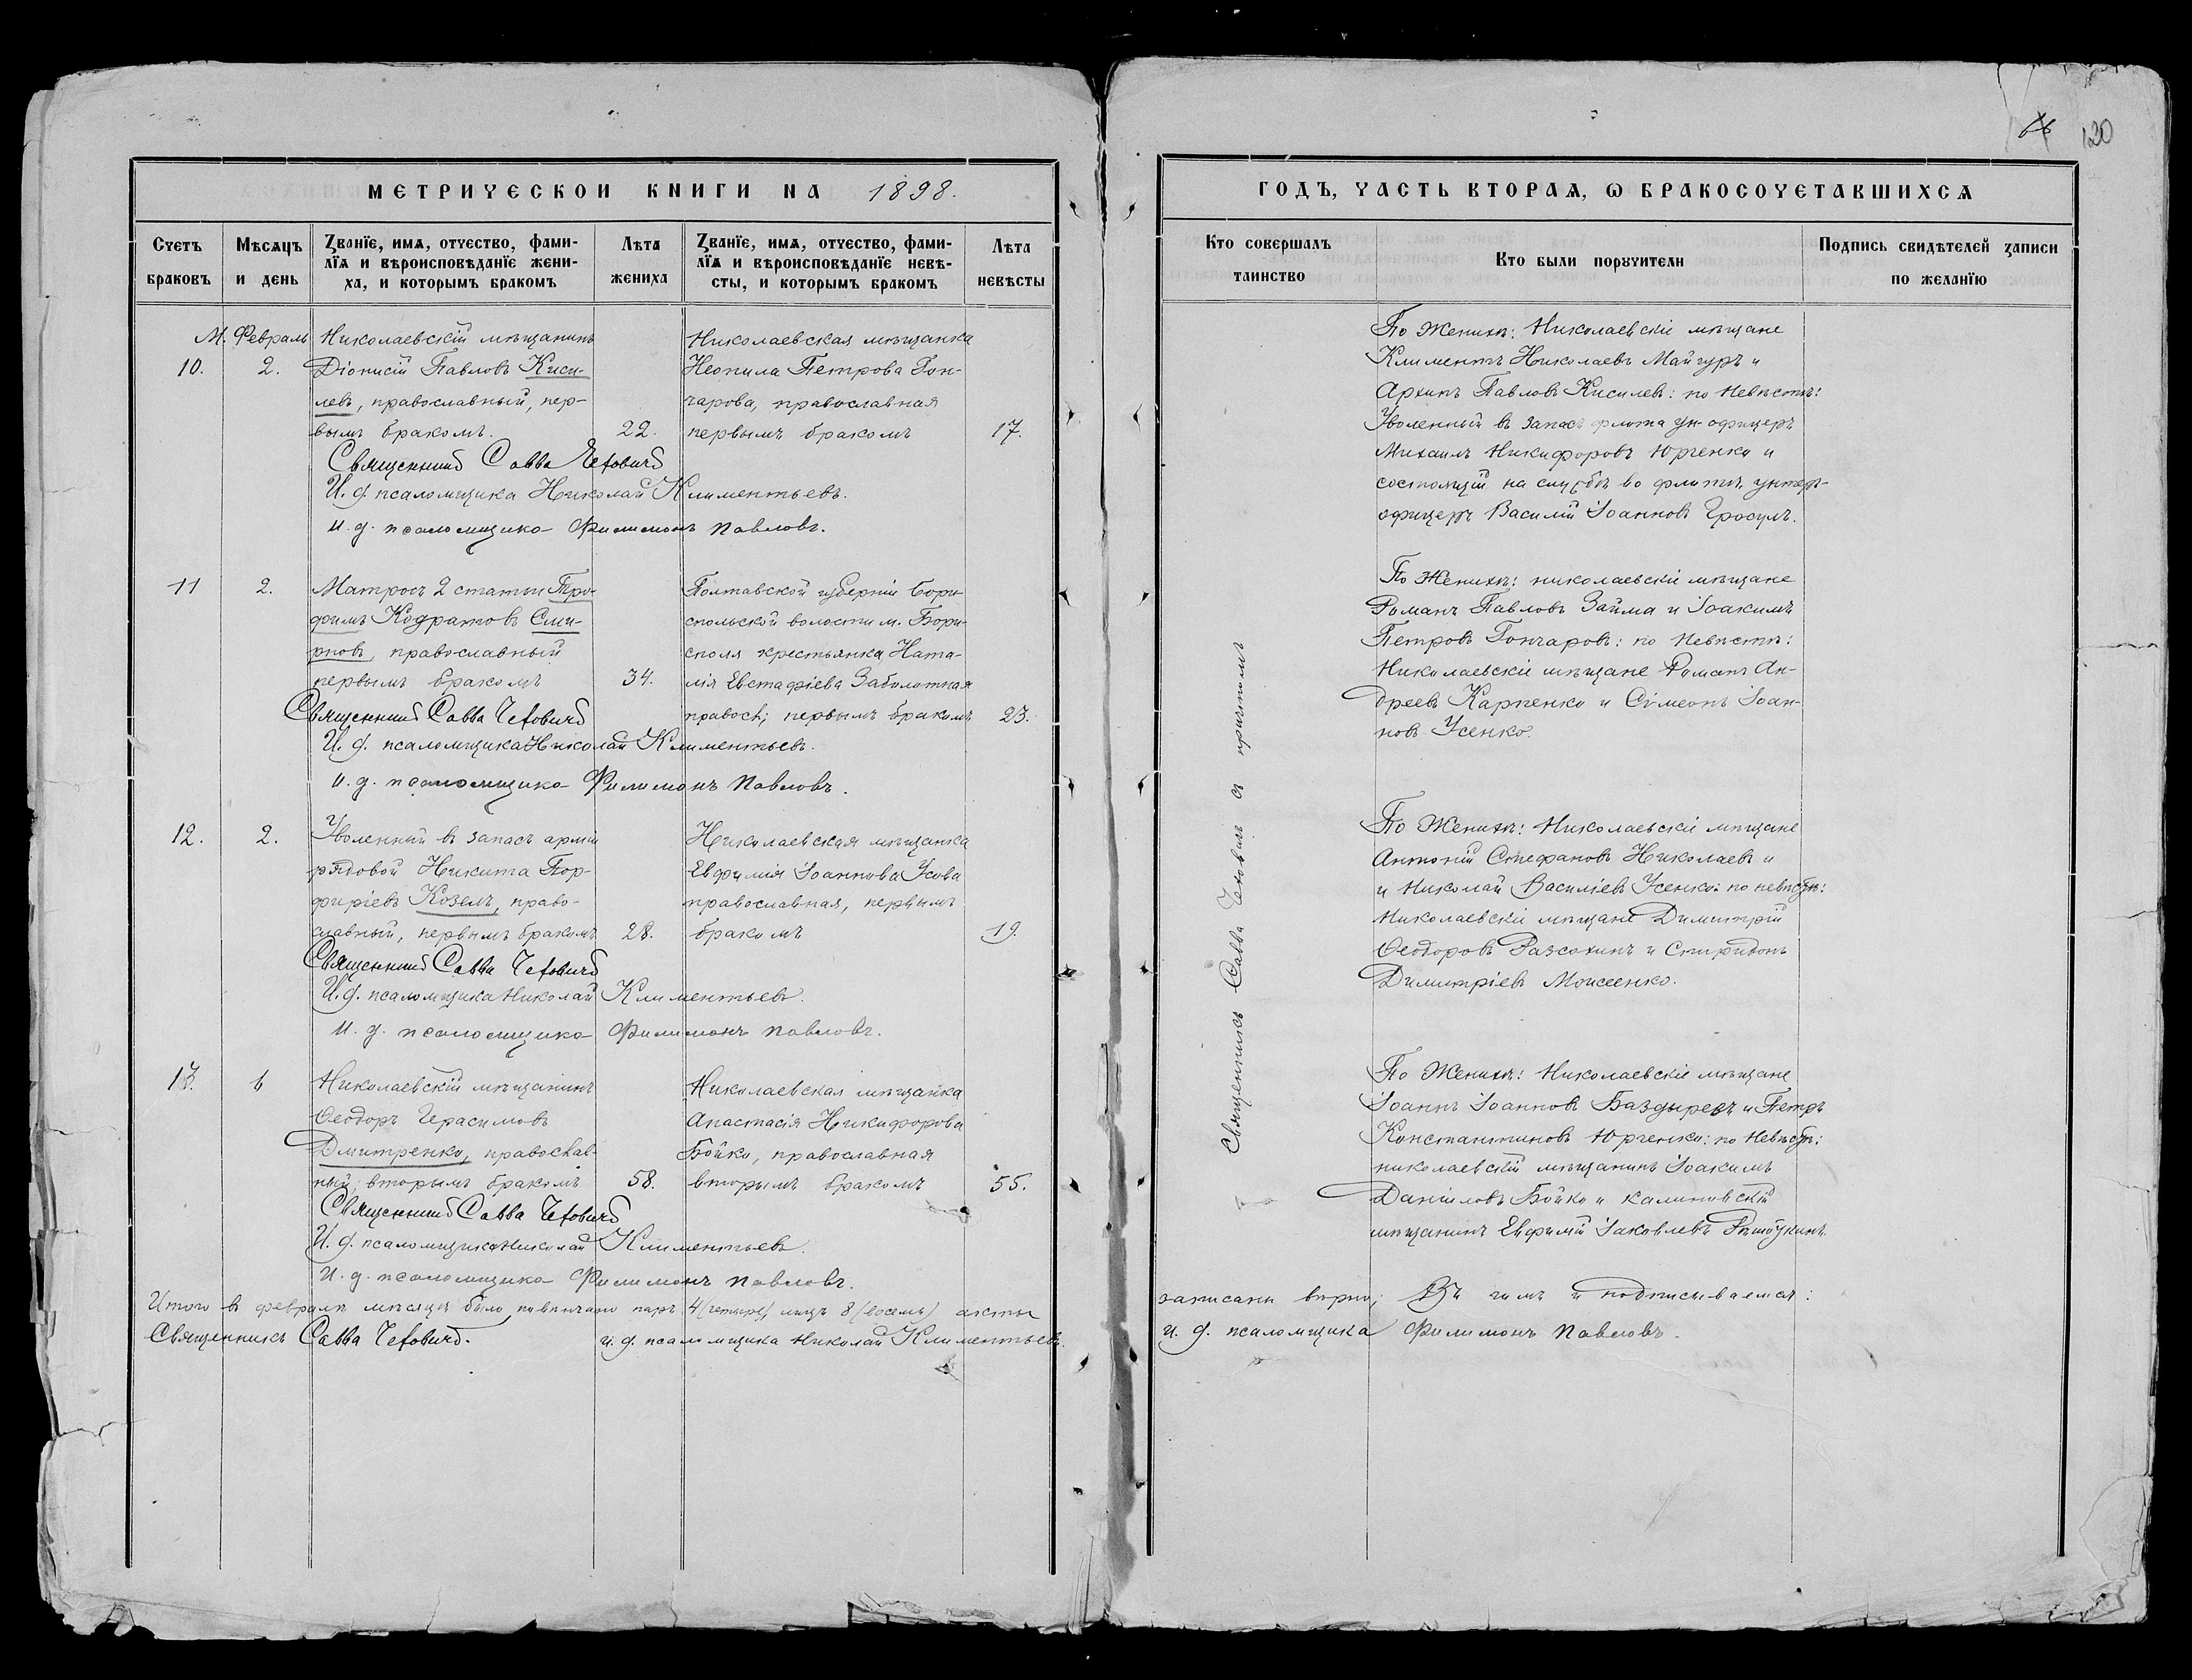 МЕТРИЧЕСКОИ КНИГИ НА 1898.
Счетъ браковъ
Мѣсяцъ и день
Званїе, имѧ, отчество, фами-
лїѧ и вѣроисповѣданїе жени-
ха, и которымъ бракомъ
Лѣта жениха
Званїе, имѧ, отчество, фами-
лїѧ и вѣроисповѣданїе невѣ-
сты, и которымъ бракомъ
Лѣта невѣсты
М. Февраль
10.
2.
Николаевскій мѣщанинъ
Діонисій Павловъ Киси-
левъ, православный, пер-
вымъ бракомъ.
22.
Николаевская мѣщанка
Неонила Петрова Гон-
чарова, православная
первымъ бракомъ
17.
Священникъ Савва Чеховичъ
И. д. псаломщика Николай Климентьевъ.
И. д. псаломщика Филимонъ Павловъ.
11
2.
Матросъ 2 статьи Тро-
фимъ Кодратовъ Сми-
рновъ, православный
первымъ бракомъ
34.
Полтавской губерніи Бори-
спольской волости м. Бори-
споля крестьянка Ната-
лія Евстафіева Заболотная
правосл; первымъ бракомъ
23.
Священникъ Савва Чеховичъ
И. д. псаломщика Николай Климентьевъ.
И. д. псаломщика Филимонъ Павловъ.
12.
2.
Уволенный въ запасъ арміи
рядовой Никита Пор-
фиріевъ Козелъ, право-
славный, первымъ бракомъ
28.
Николаевская мѣщанка
Евфимія Іоаннова Усова
православная, первымъ
бракомъ
19.
Священникъ Савва Чеховичъ
И. д. псаломщика Николай Климентьевъ.
И. д. псаломщика Филимонъ Павловъ.
13.
6
Николаевскій мѣщанинъ
Ѳеодоръ Герасимовъ
Дмитренко, православ-
ный, вторымъ бракомъ
58.
Николаевская мѣщанка
Анастасія Никифорова
Бойко, православная
вторымъ бракомъ
55.
Священникъ Савва Чеховичъ
И. д. псаломщика Николай Климентьевъ.
И. д. псаломщика Филимонъ Павловъ.
Итого въ февралѣ мѣсяцѣ было повѣнчано паръ 4 (четыре) лицъ 8 (восемь) акты
Священникъ Савва Чеховичъ. и. д. псаломщика Николай Климентьевъ.
130
ГОДЪ, ЧАСТЬ ВТОРАѦ, Ѡ БРАКОСОЧЕТАВШИХСѦ
Кто совершалъ таинство
Кто были порꙋчители
Подпись свидѣтелей записи по желанїю
Священникъ Савва Чеховичъ съ причтомъ
По Женихѣ: Николаевскіе мѣщане
Климентъ Николаевъ Майгуръ и
Архипъ Павловъ Кисилевъ: по Невѣстѣ:
Уволенный въ запасъ флота ун-офицеръ
Михаилъ Никифоровъ Юрченко и
состоящій на службѣ во флотѣ унтеръ-
офицеръ Василій Іоанновъ Гросулъ.
По Женихѣ: николаевскіе мѣщане
Романъ Павловъ Займа и Іоакимъ
Петровъ Гончаровъ: по Невѣстѣ:
Николаевскіе мѣщане Романъ Ан-
дреевъ Карпенко и Сѵмеонъ Іоан-
новъ Усенко.
По Женихѣ: Николаевскіе мѣщане
Антоній Стефановъ Николаевъ и
и Николай Василіевъ Усенко: по невѣстѣ:
Николаевскіе мѣщане Димитрій
Ѳеодоровъ Разсохинъ и Спиридонъ
Димитріевъ Моисеенко.
По Женихѣ: Николаевскіе мѣщане
Іоаннъ Іоанновъ Баздыревъ и Петръ
Константиновъ Юрченко: по Невѣстѣ:
николаевскій мѣщанинъ Іоакимъ
Даніиловъ Бойко и калиновскій
мѣщанинъ Евфимій Іаковлевъ
записаны вѣрно; Въ чемъ и подписываемся:
и. д. псаломщика Филимонъ Павловъ.